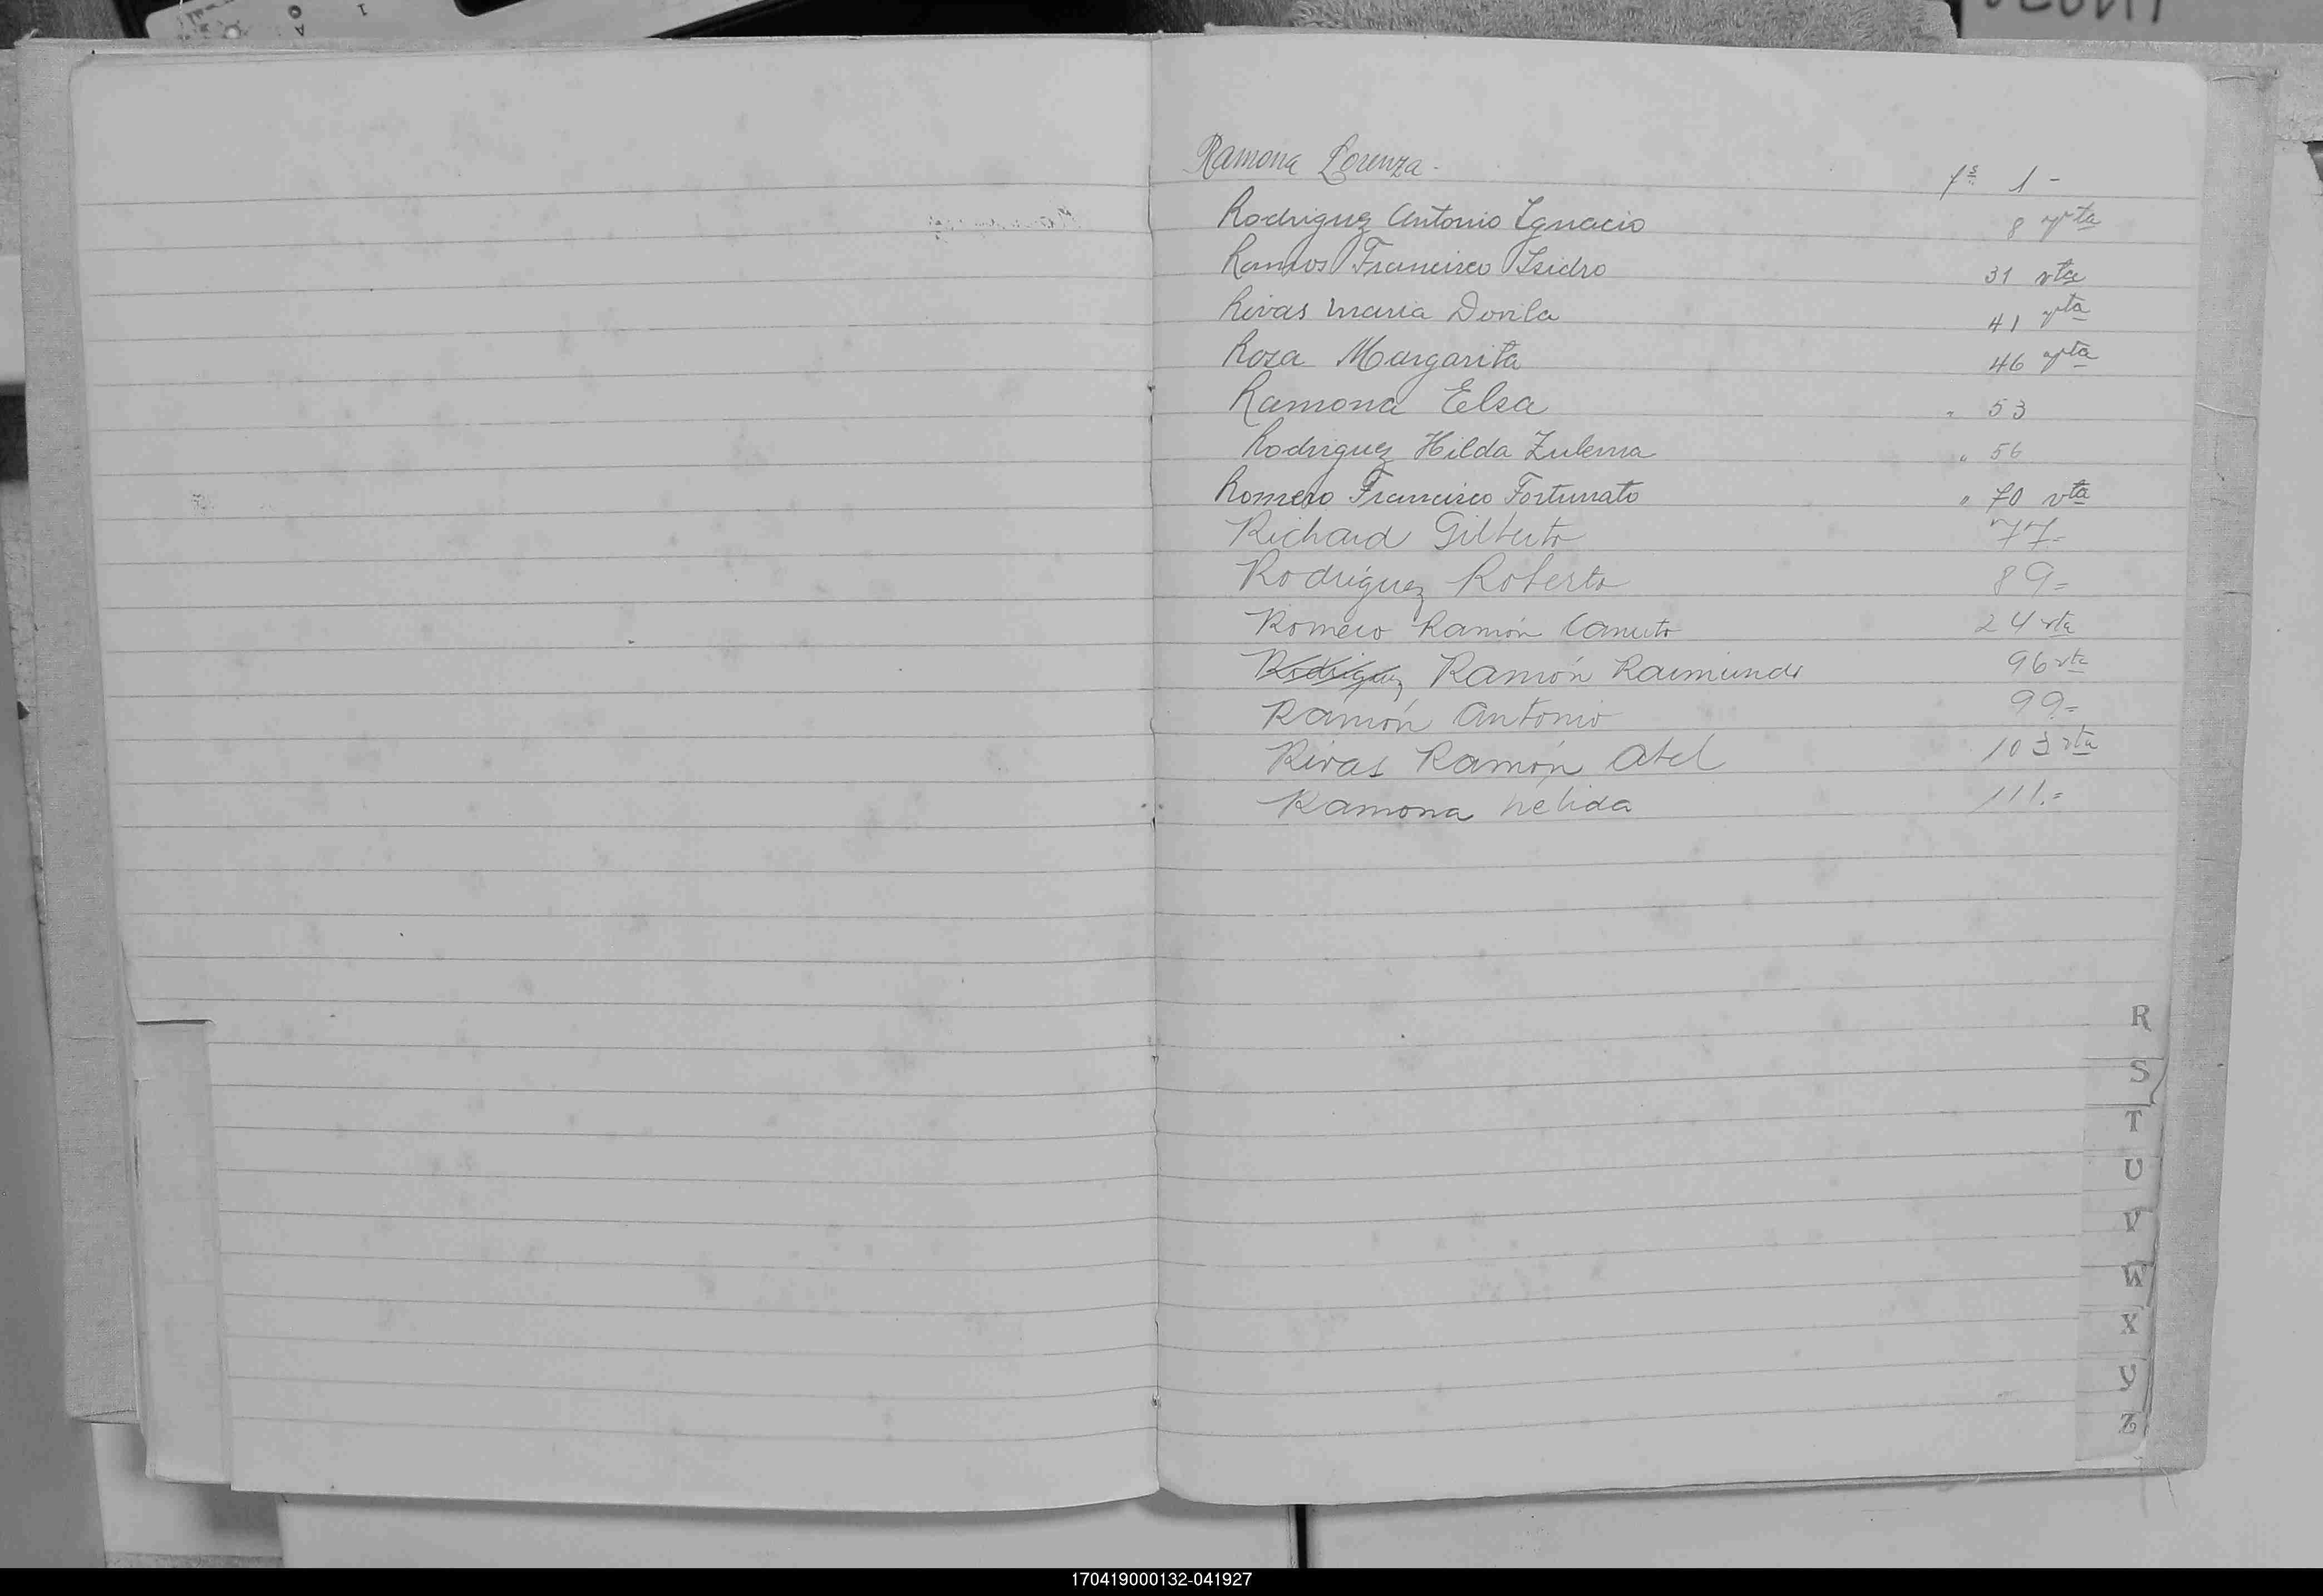 Ramona Lorenza - fs 1 -
Rodriguez Antonio Ygnacio 8 vta
Ramos Francisco Isidro 31 vta
Rivas Maria Dorila 41 vta
Rosa Margarita 46 vta
Ramona Elsa " 53
Rodriguez Hilda Zulema " 56
Romero Francisco Fortunato " 70 vta
Richard Gilberto 77=
Rodríguez Roberto 89=
Romero Ramón Canuto 24 vta
Rodriguez Ramón Raimundo 96 vta
Ramón Antonio 99.=
Rivas Ramón Abel 103 vta
Ramona Nélida 111.=
R
S
T
U
V
W
X
Y
Z
170419000132-041927